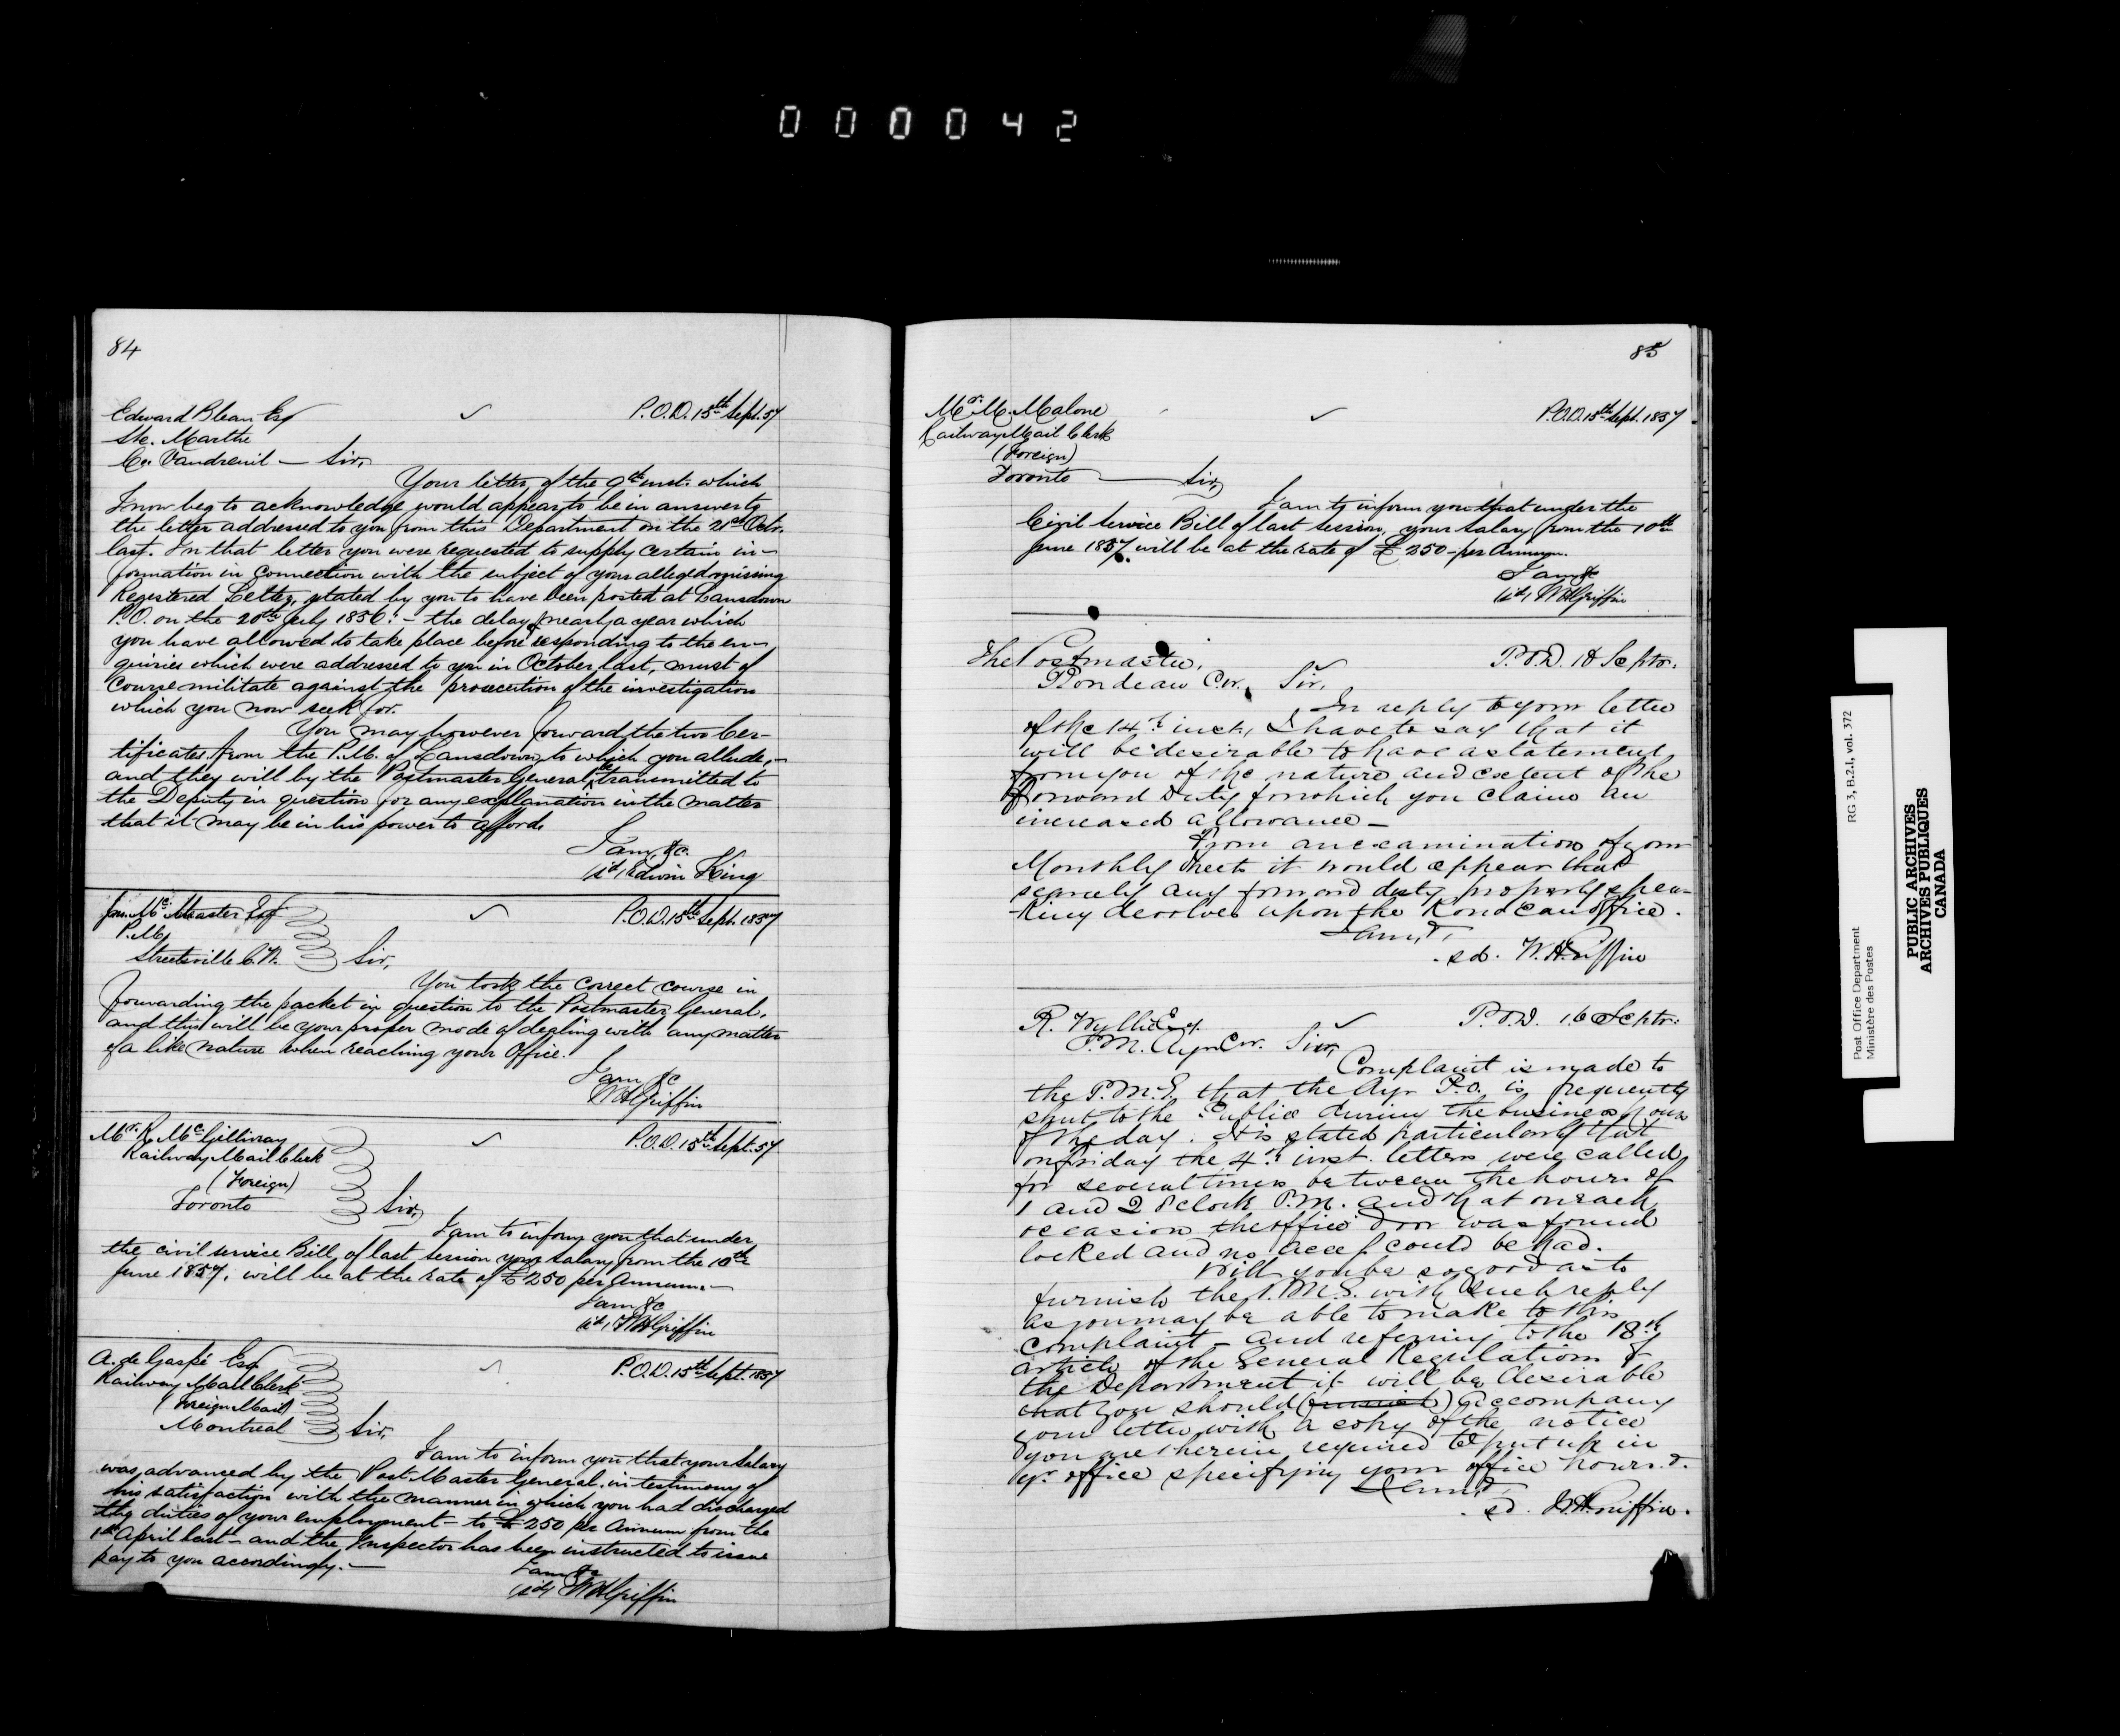 000042
84
Edward Blean Esq P.O.D. 15th Sept. 57
Ste. Marthe
Co. Vaudreuil — Sir,
Your letter, of the 9th inst. which
I now beg to acknowledge would appear to be in answer to
the letter addressed to you from this Department on the 21st Octr.
last. In that letter you were requested to supply certain in-
formation in connection with the subject of your alleged missing
Registered Letter, stated by you to have been posted at Lansdown
P.O. on the 20th July 1856: - the delay of nearly a year which
you have allowed to take place before responding to the en-
quiries which were addressed to you in October last, must of
course militate against the prosecution of the investigation
which you now seek for.
You may however forward the two Cer-
tificates from the P.M. of Lansdown to which you allude, -
and they will by the Postmaster General be transmitted to
the Deputy in question for any explanation in the matter
that it may be in his power to afford.
I am, &c.
(sd) Edwin King
Jas. Mc.Master Esq P.O.D. 15th Sept. 1857
P.M.
Streetsville C.W. Sir,
You took the correct course in
forwarding the packet in question to the Postmaster General,
and this will be your proper mode of dealing with any matter
of a like nature when reaching your Office.
I am &c
WHGriffin
Mr. R. McGillivray P.O.D. 15th Sept. 57
Railway Mail Clerk
(Foreign)
Toronto Sir,
I am to inform you that under
the civil service Bill, of last session your salary from the 10th
June 1857, will be at the rate of £250 per Annum. —
I am &c
(sd) WHGriffin
A. de Gaspé Esq P.O.D. 15th Sept. 1857
Railway Mail Clerk
(Foreign Mail)
Montreal Sir,
I am to inform you that your Salary
was advanced by the Post Master General, in testimony of
his satisfaction with the manner in which you had discharged
the duties of your employment - to £250 per Annum from the
1st April last - and the Inspector has been instructed to issue
pay to you accordingly. —
I am &c
(sd) WHGriffin
85
Mr. M. Malone P.O.D. 15th Sept. 1857
Railway Mail Clerk
(Foreign)
Toronto — Sir,
I am to inform you that under the
Civil Service Bill of last session, your Salary from the 10th
June 1857, will be at the rate of £250 - per Annum.
I am &c
(sd) WHGriffin
The Postmaster, P.O.D. 18 Septr.
Rondeau C.W. Sir,
In reply to your letter
of the 14th inst., I have to say that it
will be desirable to have a statement
from you of the nature and extent of the
forward duty for which you claim an
increased allowance —
From an examination of your
Monthly Sheets it would appear that
scarcely any forward duty properly spea-
king devolves upon the Rondeau office.
I am, &c,
sd. W.H.Griffin
R. Wyllie Esq. P.O.D. 16 Septr:
P.M. Ayr C.W. Sir,
Complaint is made to
the P.M.G. that the Ayr P.O. is frequently
shut to the Public during the business hours
of the day. It is stated particularly that
on Friday the 4th inst. letters were called
for several times between the hours of
1 and 2 o'clock P.M. and that on each
occasion the office door was found
locked and no access could be had.
Will you be so good as to
furnish the P.M.G. with such reply
as you may be able to make to this
complaint - and referring to the 18th
article of the General Regulations of
the Department it will be desirable
that you should accompany
your letter with a copy of the notice
you are therein required to put up in
yr. office specifying your office hours.
I am, &c,
sd. W.H.Griffin.
Post Office Department
Ministère des Postes
RG 3, B.2.I, vol. 372
PUBLIC ARCHIVES
ARCHIVES PUBLIQUES
CANADA